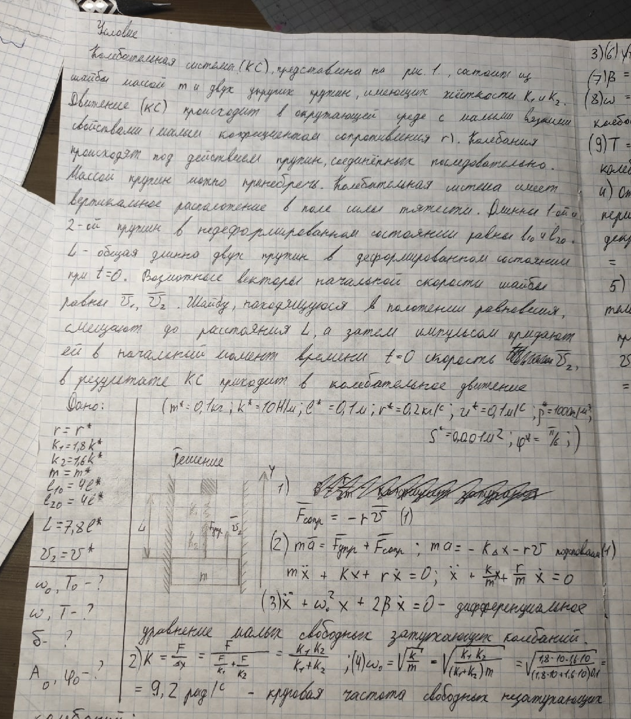 Условие
Колебательная система (КС), представлена на рис. 1, состоит из
шайбы массой m и двух упругих пружин, имеющих жёсткости k₁ и k₂.
Движение (КС) происходит в окружающей среде с малыми вязкими
свойствами (малым коэффициентом сопротивления r). Колебания
происходят под действием пружин, соединённых последовательно.
Массой пружин можно пренебречь. Колебательная система имеет
вертикальное расположение в поле силы тяжести. Длинны 1-ой и
2-ой пружин в недеформированном состоянии равны l₁₀ и l₂₀.
L - общая длинна двух пружин в деформированном состоянии
при t=0. Возможные векторы начальной скорости шайбы
равны v̄₁, v̄₂. Шайбу, находящуюся в положении равновесия,
смещают до расстояния L, а затем импульсом придают
ей в начальный момент времени t=0 скорость v̄₂,
в результате КС приходит в колебательное движение
Дано: (m*=0,1кг; k*=10Н/м; l*=0,1м; r*=0,2кг/с; v*=0,1м/с; ρ*=1000кг/м³;
S*=0,001м²; φ*=π/6;)
r = r*
k₁=1,8k*
k₂=1,6k*
m = m*
l₁₀=4l*
l₂₀=4l*
L=7,8l*
v₂=v*
ω₀, T₀-?
ω, T-?
δ-?
A₀, φ₀-?
Решение
Y
L
k₁
k₂
Fупр
v̄₂
m
1)
F̄сопр = -r v̄ (1)
(2) mā = F̄упр + F̄сопр; ma = -kΔx - rv (1)
mẍ + kx + rẋ = 0; ẍ + k/m x + r/m ẋ = 0
(3) ẍ + ω₀² x + 2βẋ = 0 - дифференциальное
уравнение малых свободных затухающих колебаний.
2) K = F/Δx = F/(F/k₁ + F/k₂) = k₁k₂/(k₁+k₂); (4) ω₀ = √(k/m) = √(k₁k₂/((k₁+k₂)m)) = √(1,8·10·1,6·10/((1,8·10+1,6·10)0,1)) =
= 9,2 рад/с - круговая частота свободных незатухающих
колебаний.
3)(6)
(7) β =
(8) ω =
колеба
(9) T =
колеб
4)
пери
декр
=
5)
=